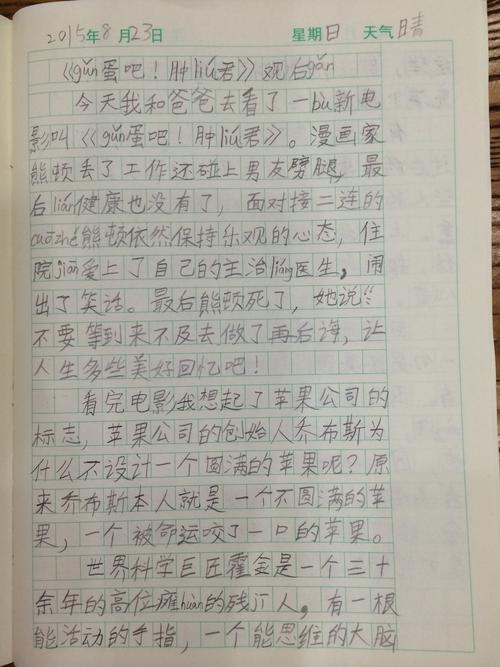 2015年8月23日 星期日 天气晴
《gǔn蛋吧！肿liú君》观后gǎn
今天我和爸爸去看了一bù新电
影叫《gǔn蛋吧！肿liú君》。漫画家
熊顿丢了工作还碰上男友劈腿，最
后lián健康也没有了，面对接二连的
cuòzhé熊顿依然保持乐观的心态，住
院jiān爱上了自己的主治liáng医生，闹
出了笑话。最后熊顿死了，她说：“
不要等到来不及去做了再后诲，让
人生多些美好回忆吧！
看完电影我想起了苹果公司的
标志，苹果公司的创始人乔布斯为
什么不设计一个圆满的苹果呢？原
来乔布斯本人就是一个不圆满的苹
果，一个被命运咬了一口的苹果。
世界科学巨匠霍金是一个三十
余年的高位瘫huàn的残疒人，有一根
能活动的手指，一个能思维的大脑